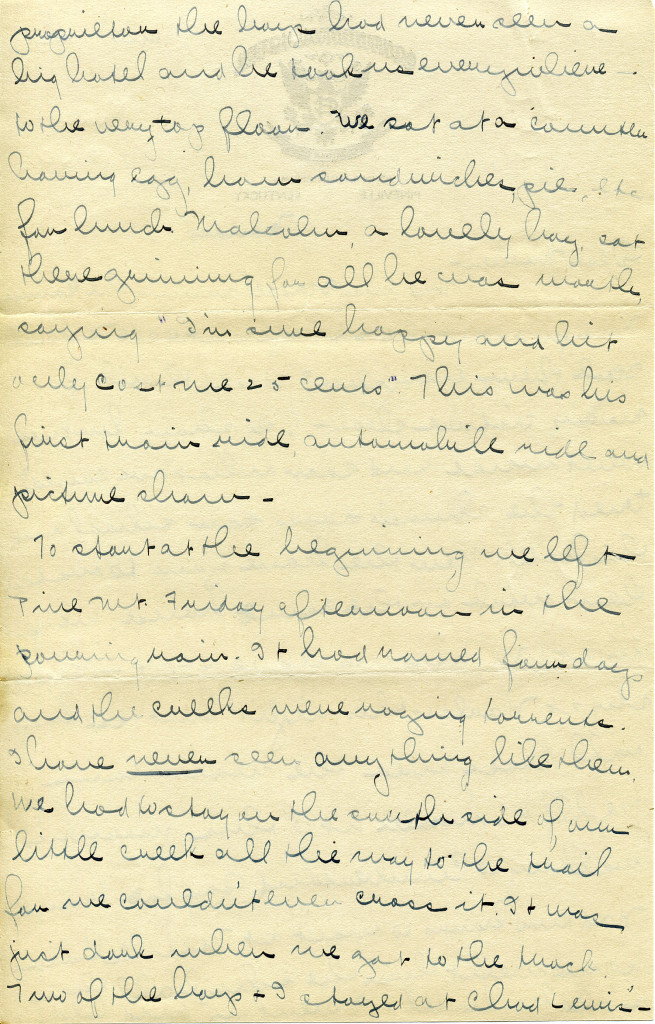 proprietor the boys had never seen a
big hotel and he took us everywhere -
to the very top floor. We sat at a counter
having egg, ham sandwiches, pie, etc
for lunch. Malcolm, a lovely boy, sat
there grinning for all he was worth,
saying "I'm sure happy and hit
only cost me 25 cents". This was his
first train ride, automobile ride and
picture show -
To start at the beginning we left
Pine Mt. Friday afternoon in the
pouring rain. It had rained four days
and the creeks were raging torrents.
I have never seen anything like them.
We had to stay on the south side of our
little creek all the way to the trail
for we couldn't even cross it. It was
just dark when we got to the track.
Two of the boys + I stayed at Chad Lewis' -